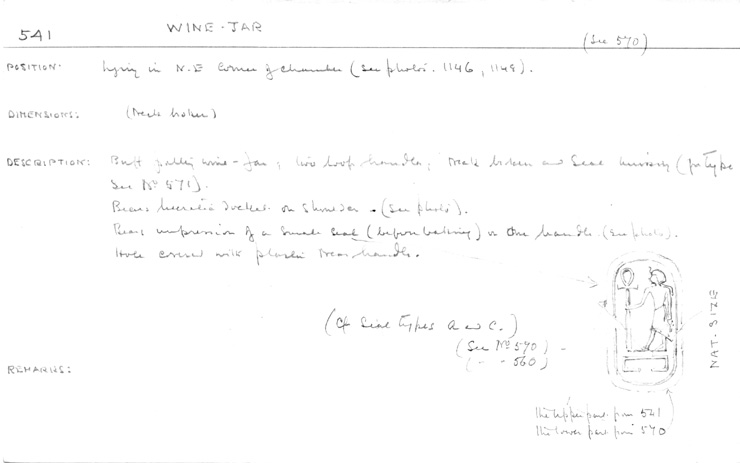 541 WINE-JAR
(See 570)
POSITION: Lying in N.E. Corner of chamber (See photos. 1146, 1148).
DIMENSIONS: (Neck broken)
DESCRIPTION: Buff pottery wine-jar; two loop handles; neck broken and Seal missing (for type
See No 571).
Bears hieratic docket on shoulder. (See photo).
Bears impression of a small seal (before baking) on one handle. (See photo).
Hole covered with plaster near handle.
(Cf Seal types A and C.)
(See No 570)
( - - 560)
NAT. SIZE
REMARKS:
The upper part from 541
The lower part from 570